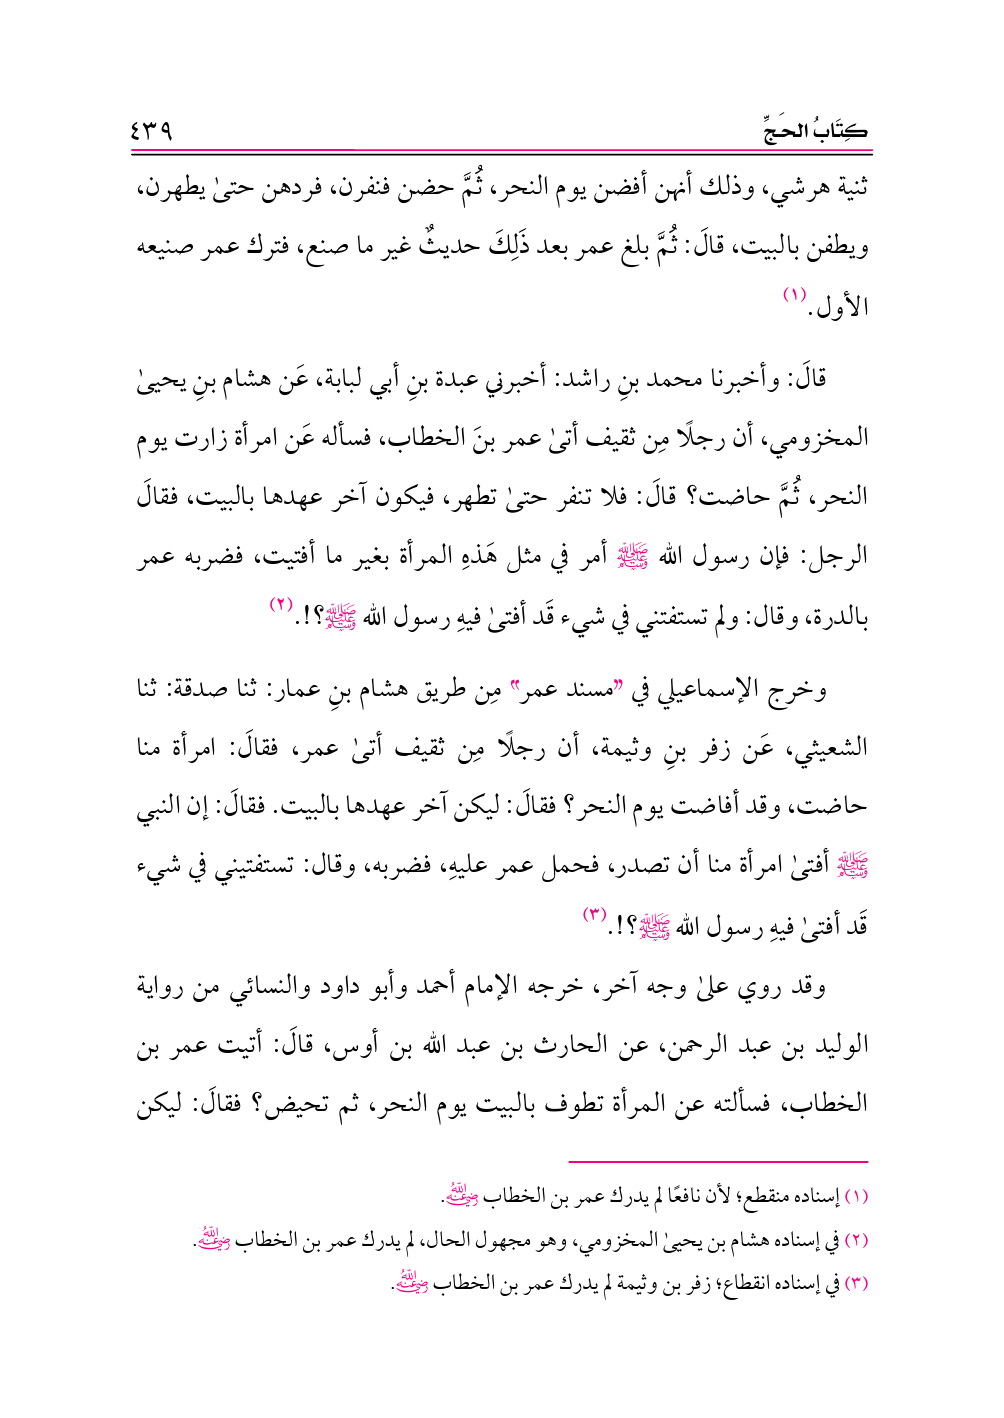 كِتَابُ الحَجِّ ٤٣٩
ثنية هرشي، وذلك أنهن أفضن يوم النحر، ثُمَّ حضن فنفرن، فردهن حتىٰ يطهرن،
ويطفن بالبيت، قالَ: ثُمَّ بلغ عمر بعد ذَلِكَ حديثٌ غير ما صنع، فترك عمر صنيعه
الأول.(١)
قالَ: وأخبرنا محمد بنِ راشد: أخبرني عبدة بنِ أبي لبابة، عَن هشام بنِ يحيىٰ
المخزومي، أن رجلًا مِن ثقيف أتىٰ عمر بنَ الخطاب، فسأله عَن امرأة زارت يوم
النحر، ثُمَّ حاضت؟ قالَ: فلا تنفر حتىٰ تطهر، فيكون آخر عهدها بالبيت، فقالَ
الرجل: فإن رسول الله ﷺ أمر في مثل هَذهِ المرأة بغير ما أفتيت، فضربه عمر
بالدرة، وقال: ولم تستفتني في شيء قَد أفتىٰ فيهِ رسول الله ﷺ؟!.(٢)
وخرج الإسماعيلي في "مسند عمر" مِن طريق هشام بنِ عمار: ثنا صدقة: ثنا
الشعيثي، عَن زفر بنِ وثيمة، أن رجلًا مِن ثقيف أتىٰ عمر، فقالَ: امرأة منا
حاضت، وقد أفاضت يوم النحر؟ فقالَ: ليكن آخر عهدها بالبيت. فقالَ: إن النبي
ﷺ أفتىٰ امرأة منا أن تصدر، فحمل عمر عليهِ، فضربه، وقال: تستفتيني في شيء
قَد أفتىٰ فيهِ رسول الله ﷺ؟!.(٣)
وقد روي علىٰ وجه آخر، خرجه الإمام أحمد وأبو داود والنسائي من رواية
الوليد بن عبد الرحمن، عن الحارث بن عبد الله بن أوس، قالَ: أتيت عمر بن
الخطاب، فسألته عن المرأة تطوف بالبيت يوم النحر، ثم تحيض؟ فقالَ: ليكن
(١) إسناده منقطع؛ لأن نافعًا لم يدرك عمر بن الخطاب رضي الله عنه.
(٢) في إسناده هشام بن يحيىٰ المخزومي، وهو مجهول الحال، لم يدرك عمر بن الخطاب رضي الله عنه.
(٣) في إسناده انقطاع؛ زفر بن وثيمة لم يدرك عمر بن الخطاب رضي الله عنه.